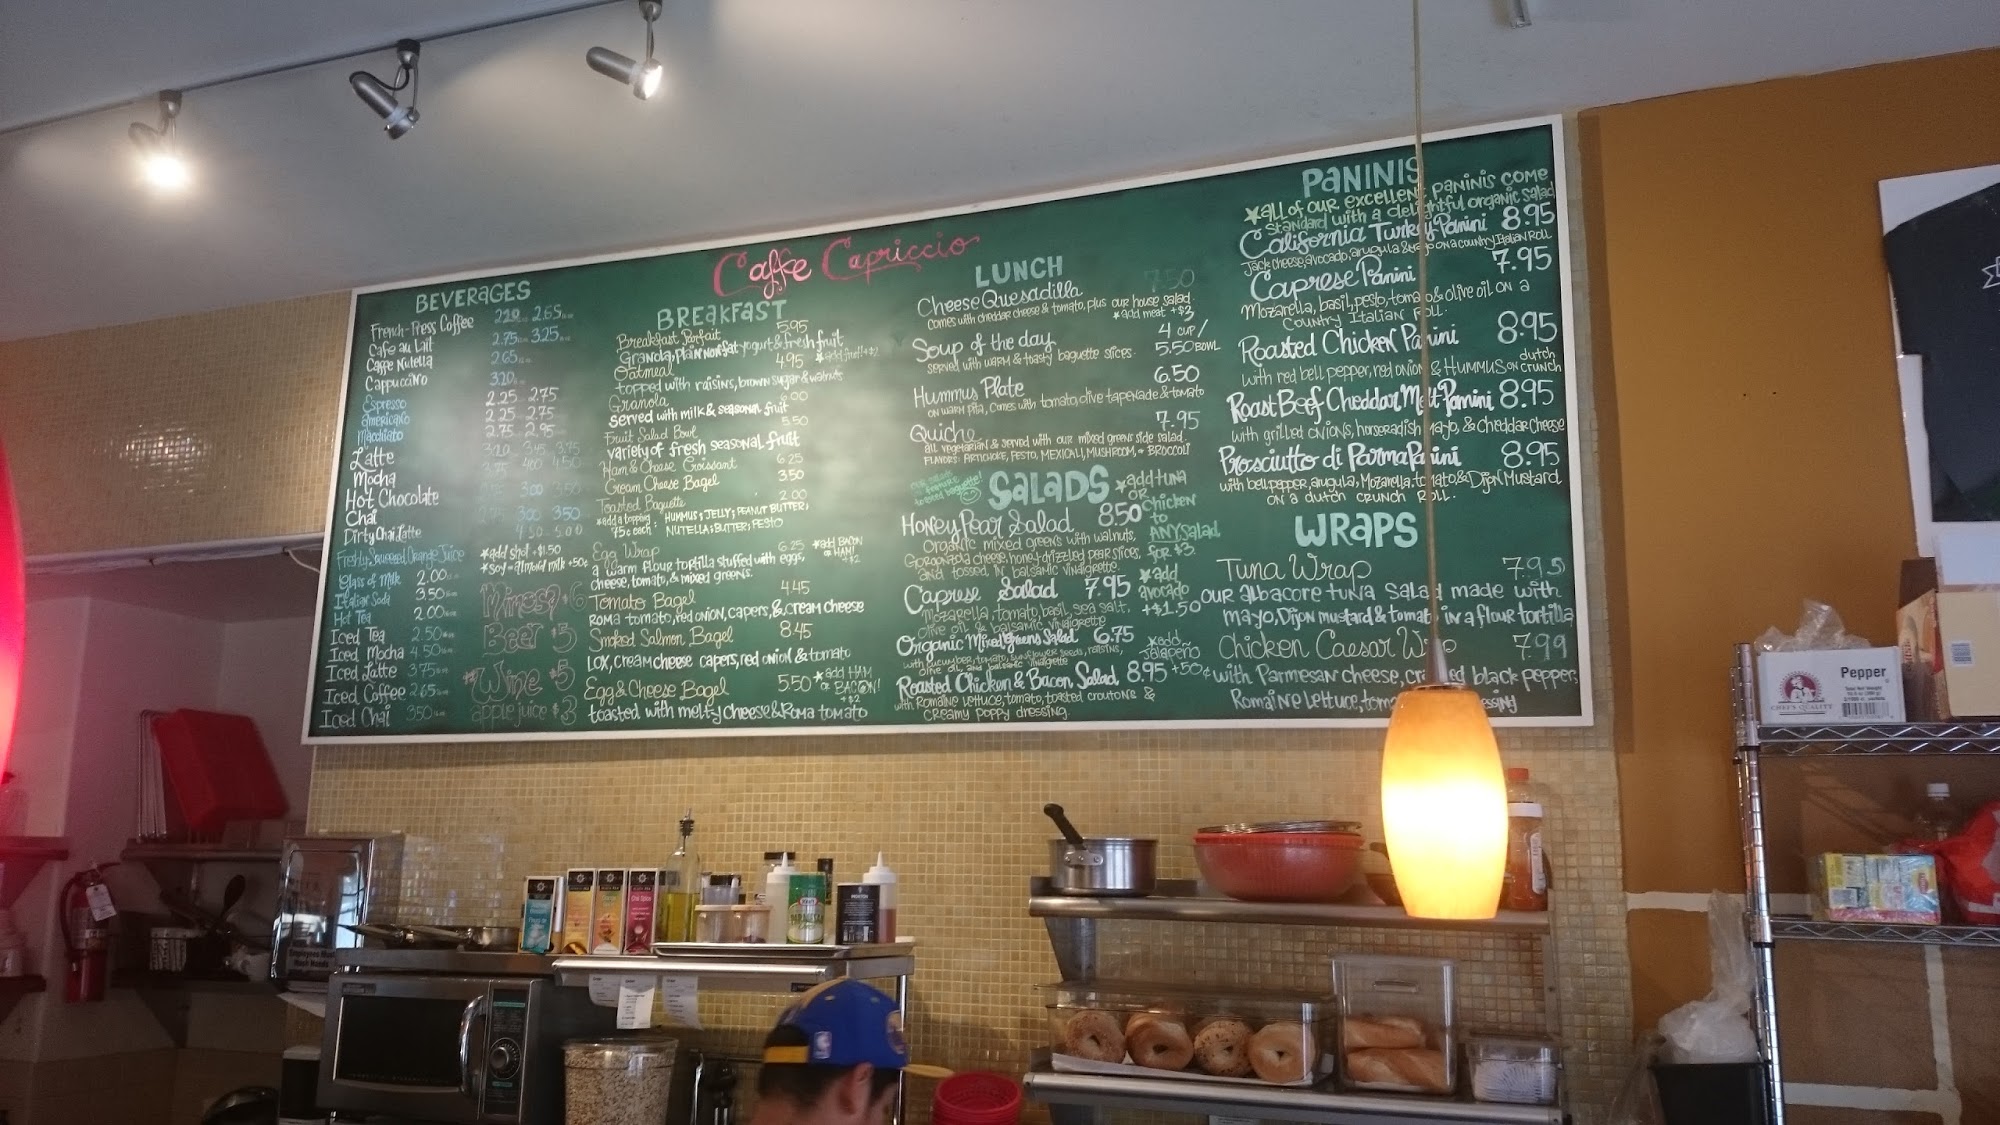 Caffe Capriccio
BEVERAGES
French-Press Coffee 2.20 2.65
Cafe au Lait 2.75 3.25
Caffe Nutella 2.65
Cappuccino 3.20
Espresso 2.25 2.75
americano 2.25 2.75
Macchiato 2.75 2.95
Latte 3.20 3.45 3.75
Mocha 3.75 4.00 4.50
Hot Chocolate 3.00 3.50
Chai 2.75 3.00 3.50
Dirty Chai Latte 4.50 5.00
Freshly Squeezed Orange Juice
*add shot +$1.50
*soy-almond milk +50¢
Glass of Milk 2.00
Italian Soda 3.50
Hot Tea 2.00
Iced Tea 2.50
Iced Mocha 4.50
Iced Latte 3.75
Iced Coffee 2.65
Iced Chai 3.50
Mimosa $6
Beer $5
*Wine $5
apple juice $3
BREAKFAST
Breakfast Parfait 5.95
Granola, plain nonfat yogurt & fresh fruit
Oatmeal 4.95 *add fruit +$2
topped with raisins, brown sugar & walnuts
Granola 6.00
served with milk & seasonal fruit
Fruit Salad Bowl 5.50
variety of fresh seasonal fruit
Ham & Cheese Croissant 6.25
Cream Cheese Bagel 3.50
Toasted Baguette 2.00
*add a topping 75¢ each: HUMMUS; JELLY; PEANUT BUTTER;
NUTELLA; BUTTER; PESTO
Egg Wrap 6.25 *add BACON or HAM! +$2
a warm flour tortilla stuffed with eggs,
cheese, tomato, & mixed greens.
Tomato Bagel 4.45
ROMA tomato, red onion, capers, & cream cheese
Smoked Salmon Bagel 8.45
LOX, cream cheese capers, red onion & tomato
Egg & Cheese Bagel 5.50 *add HAM or BACON! +$2
toasted with melty cheese & Roma tomato
LUNCH
Cheese Quesadilla 7.50
comes with cheddar cheese & tomato, plus our house salad.
*add meat +$3
Soup of the day 4 CUP/
served with warm & toasty baguette slices. 5.50 BOWL
Hummus Plate 6.50
on warm pita, comes with tomato, olive tapenade & tomato
Quiche 7.95
all vegetarian & served with our mixed greens side salad.
FLAVORS: ARTICHOKE, PESTO, MEXICALI, MUSHROOM, & BROCCOLI
SALADS
*add tuna
OR
Chicken
to
ANY Salad
for $3
Honey Pear Salad 8.50
Organic mixed greens with walnuts,
Gorgonzola cheese, honey-drizzled pear slices,
and tossed in balsamic vinaigrette
Caprese Salad 7.95
Mozarella, tomato, basil, sea salt,
olive oil & balsamic vinaigrette
*add
avocado
+$1.50
Organic Mixed Greens Salad 6.75
with cucumber, tomato, sunflower seeds, raisins,
olive oil, and balsamic vinaigrette
*add
Jalapeño
+50¢
Roasted Chicken & Bacon Salad 8.95
with Romaine lettuce, tomato, toasted croutons &
creamy poppy dressing.
PANINIS
*all of our excellent paninis come
standard with a delightful organic salad
California Turkey Panini 8.95
Jack cheese, avocado, arugula & mayo on a country Italian Roll
Caprese Panini 7.95
Mozarella, basil, pesto, tomato & olive oil on a
Country Italian Roll.
Roasted Chicken Panini 8.95
with red bell pepper, red onion & Hummus on dutch crunch
Roast Beef Cheddar Melt Panini 8.95
with grilled onions, horseradish mayo, & Cheddar Cheese
Prosciutto di Parma Panini 8.95
with bell pepper, arugula, Mozarella, tomato & Dijon Mustard
on a dutch crunch roll.
WRAPS
Tuna Wrap 7.95
our albacore tuna salad made with
mayo, Dijon mustard & tomato in a flour tortilla
Chicken Caesar Wrap 7.99
with Parmesan cheese, cracked black pepper,
Romaine Lettuce,
Pepper
CHEF'S QUALITY
Employees Must
Wash Hands